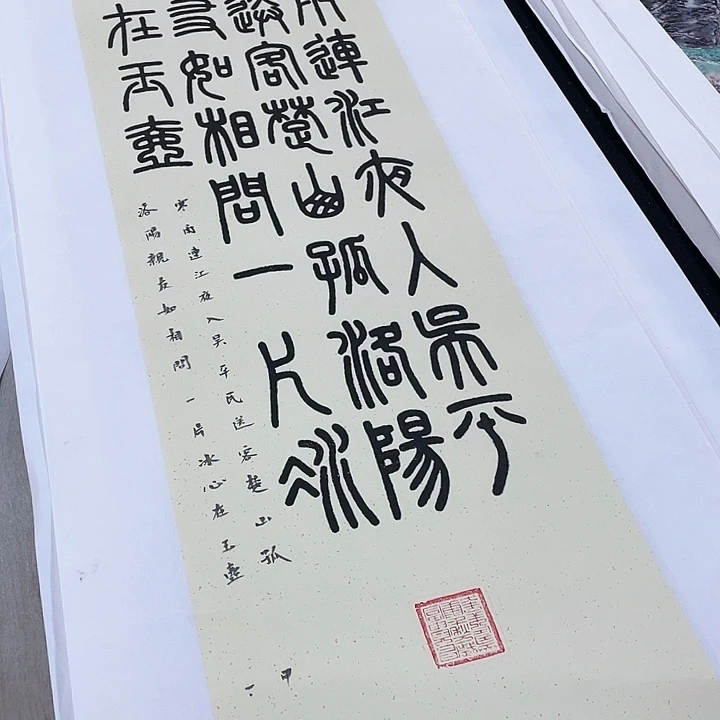 雨連江夜入吳平
送客楚山孤洛陽
友如相問一片冰
在玉壺
寒雨連江夜入吳平民送客楚山孤
洛陽親友如相問一片冰心在玉壺
甲